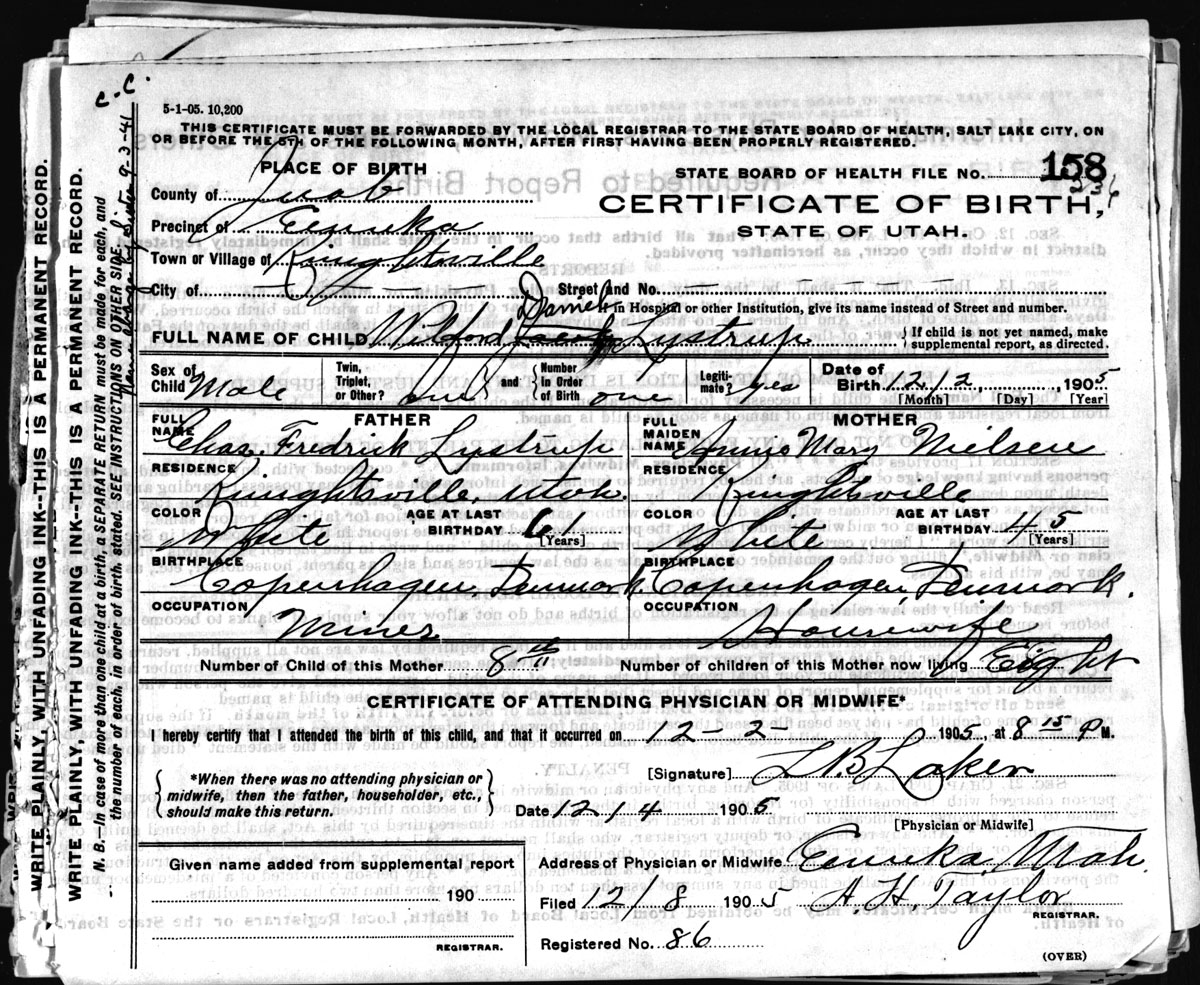 C.C.
5-1-05. 10,200
THIS CERTIFICATE MUST BE FORWARDED BY THE LOCAL REGISTRAR TO THE STATE BOARD OF HEALTH, SALT LAKE CITY, ON
OR BEFORE THE 5TH OF THE FOLLOWING MONTH, AFTER FIRST HAVING BEEN PROPERLY REGISTERED.
PLACE OF BIRTH
STATE BOARD OF HEALTH FILE No. 158
236
County of Juab
CERTIFICATE OF BIRTH,
Precinct of Eureka
STATE OF UTAH.
Town or Village of Knightville
City of Street and No.
Daniel
If in Hospital or other Institution, give its name instead of Street and number.
FULL NAME OF CHILD Wilford Jacob Lystrup { If child is not yet named, make
supplemental report, as directed.
Sex of Child Male Twin, Triplet, or Other? one and Number In Order of Birth one Legiti-mate? yes Date of Birth 12/2, 1905
[Month] [Day] [Year]
FATHER MOTHER
FULL NAME Chas. Fredrick Lystrup FULL MAIDEN NAME Mary Nielsen
RESIDENCE Knightsville, Utah. RESIDENCE Knightsville
COLOR White AGE AT LAST BIRTHDAY 61 [Years] COLOR White AGE AT LAST BIRTHDAY 45 [Years]
BIRTHPLACE Copenhagen, Denmark. BIRTHPLACE Copenhagen, Denmark.
OCCUPATION Miner OCCUPATION Housewife
Number of Child of this Mother 8th Number of children of this Mother now living Eight
CERTIFICATE OF ATTENDING PHYSICIAN OR MIDWIFE*
I hereby certify that I attended the birth of this child, and that it occurred on 12-2- 1905, at 8 15 P M.
*When there was no attending physician or
midwife, then the father, householder, etc.,
should make this return.
[Signature] L B Laker
Date 12/4 1905
[Physician or Midwife]
Given name added from supplemental report
190
REGISTRAR.
Address of Physician or Midwife Eureka, Utah.
Filed 12/8 1905 A. H. Taylor
REGISTRAR.
Registered No. 86
(OVER)
WRITE PLAINLY, WITH UNFADING INK--THIS IS A PERMANENT RECORD.
WRITE PLAINLY, WITH UNFADING INK--THIS IS A PERMANENT RECORD.
N. B.—In case of more than one child at a birth, a SEPARATE RETURN must be made for each, and
the number of each, in order of birth, stated. SEE INSTRUCTIONS ON OTHER SIDE.
Name change by Sister 9-3-41